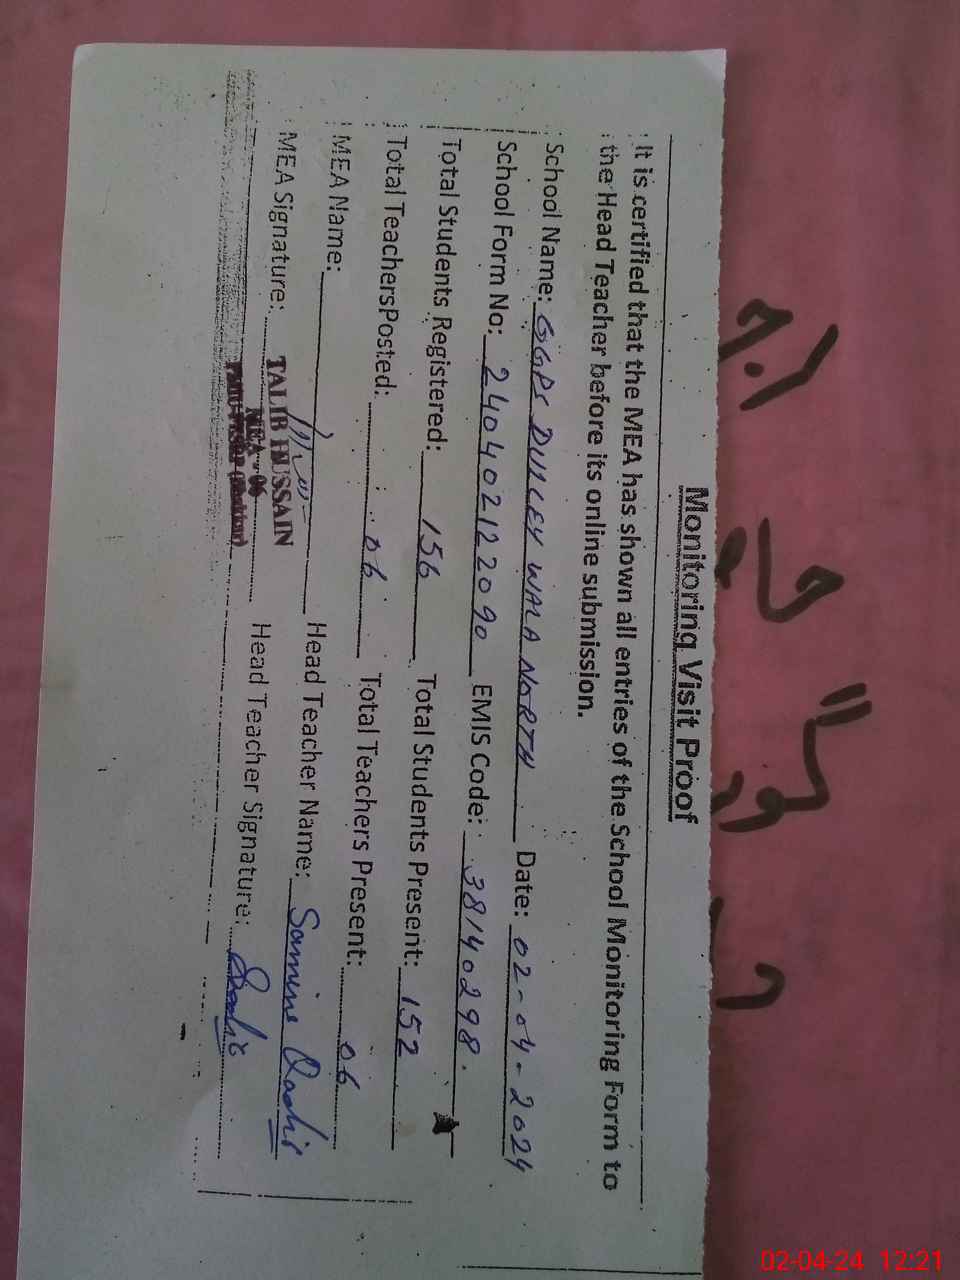 Monitoring Visit Proof
It is certified that the MEA has shown all entries of the School Monitoring Form to
the Head Teacher before its online submission.
School Name: GGPS DULLEY WALA NORTH Date: 02-04-2024
School Form No: 24040212090 EMIS Code: 38140298.
Total Students Registered: 156 Total Students Present: 152
Total TeachersPosted: 06 Total Teachers Present: 06
MEA Name: Head Teacher Name: Samina
MEA Signature: Head Teacher Signature:
TALIB HUSSAIN
MEA - 06
02-04-24 12:21